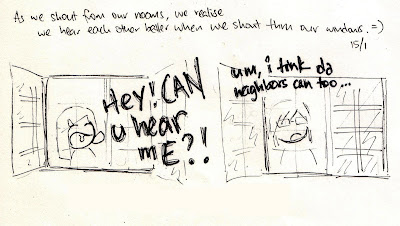 As we shout from our rooms, we realise
we hear each other better when we shout thru our windows. =)
15/1
Hey! CAN
u hear
mE?!
um, i tink da
neighbors can too...